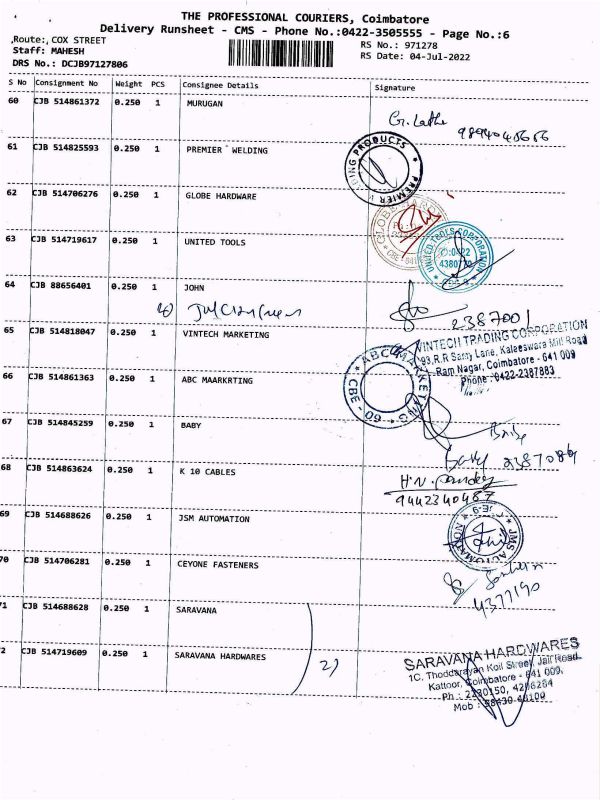 THE PROFESSIONAL COURIERS, Coimbatore
Delivery Runsheet - CMS - Phone No.:0422-3505555 - Page No.:6
Route: COX STREET
RS No.: 971278
Staff: MAHESH
RS Date: 04-Jul-2022
DRS No.: DCJB97127806
S No Consignment No Weight PCS Consignee Details Signature
60 CJB 514861372 0.250 1 MURUGAN
9894048656
61 CJB 514825593 0.250 1 PREMIER WELDING
PRODUCTS PREMIER
62 CJB 514706276 0.250 1 GLOBE HARDWARE
63 CJB 514719617 0.250 1 UNITED TOOLS
UNITED TOOLS CORPORATION
64 CJB 88656401 0.250 1 JOHN
2387001
65 CJB 514818047 0.250 1 VINTECH MARKETING
VINTECH TRADING CORPORATION
93,R.R Samy Lane, Kaleeswara Mill Road
Ram Nagar, Coimbatore - 641 009
Phone : 0422-2387883
66 CJB 514861363 0.250 1 ABC MAARKRTING
ABC MARKETING CBE - 60
67 CJB 514845259 0.250 1 BABY
2387086
68 CJB 514863624 0.250 1 K 10 CABLES
H.N. Pandey
9442340487
69 CJB 514688626 0.250 1 JSM AUTOMATION
70 CJB 514706281 0.250 1 CEYONE FASTENERS
4377190
71 CJB 514688628 0.250 1 SARAVANA
72 CJB 514719609 0.250 1 SARAVANA HARDWARES
2)
SARAVANA HARDWARES
1C, Thoddarayan Koil Street, Jail Road
Kattoor, Coimbatore - 641 009,
Ph : 2230150,
Mob :